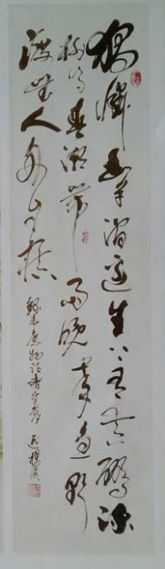 獨憐幽草澗邊生上有黃鸝深
樹鳴春潮帶雨晚來急野
渡無人舟自橫
韋應物詩